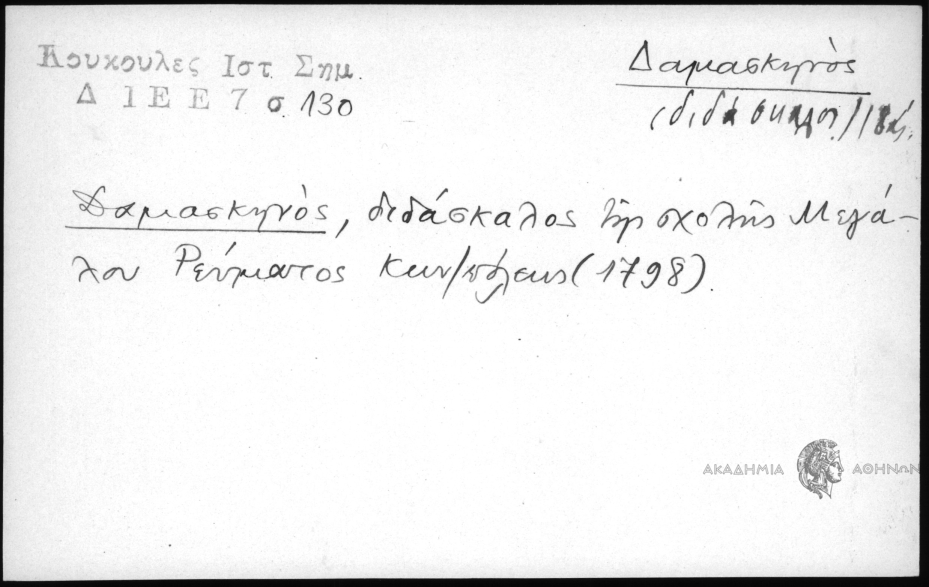 Κουκουλες Ιστ. Σημ.
Δ Ι Ε Ε 7 σ. 130
Δαμασκηνὸς
(διδάσκαλος) 18 αἰ.
Δαμασκηνὸς, διδάσκαλος τῆς σχολῆς Μεγά-
λου Ρεύματος Κων/πόλεως (1798).
ΑΚΑΔΗΜΙΑ ΑΘΗΝΩΝ